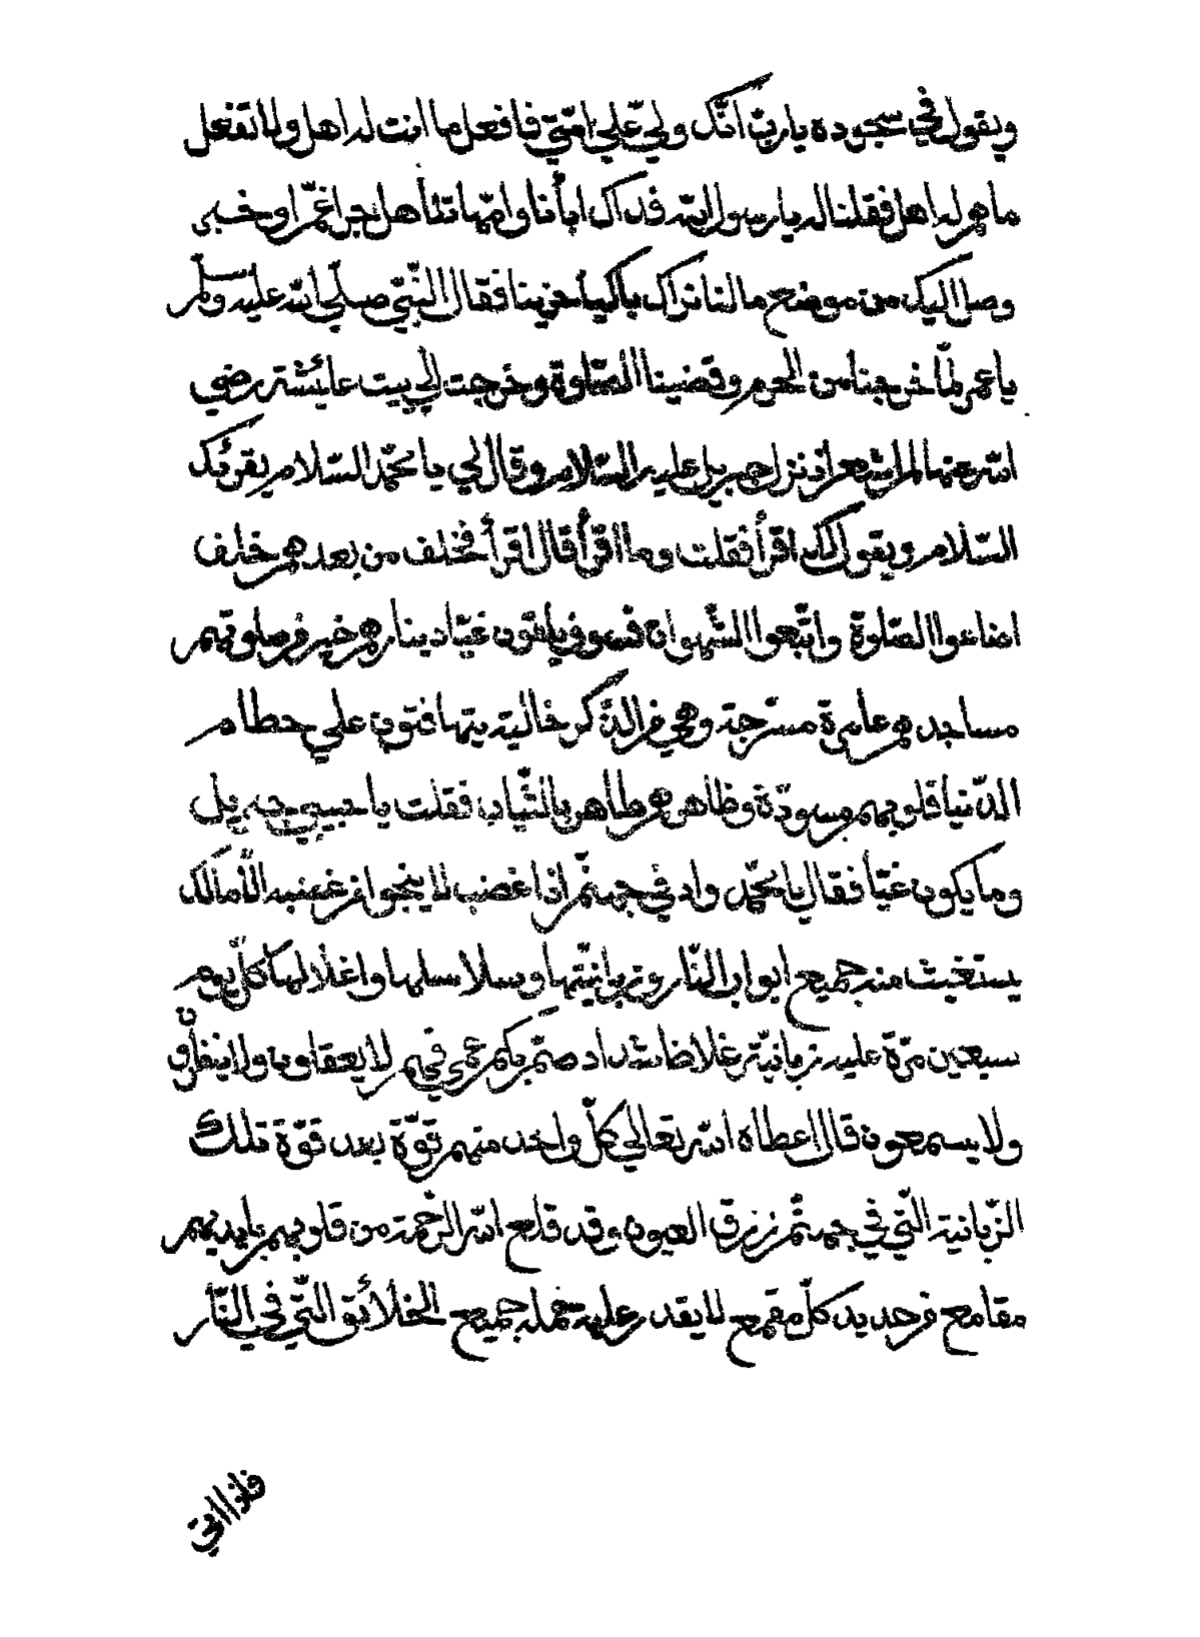 ويقول في سجوده يا ربّ انّك وليّ علي امّتي فافعل ما انت له اهل ولا تفعل
ما هم له اهل فقلنا له يا رسول الله فداك ابأنا وامّهاتنا هل جرا غمّ او خبر
وصل اليك من موضع مالنا نراك باكياً حزينا فقال النّبيّ صلّي الله عليه وسلّم
يا عمر لمّا خرجنا من الحرم وقضينا الصّلوة وخرجت الي بيت عايشة رضي
الله عنها لم اشعر اذ نزل جبريل عليه السّلام وقال لي يا محمّد السّلام يقرئك
السّلام ويقول لك اقرأ فقلت وما اقرأ قال اقرأ فخلف من بعدهم خلف
اضاعوا الصّلوة واتّبعوا الشّهوات فسوف يلقون غيّا دينارهم خير من صلوتهم
مساجدهم عامرة مسرّجة وهي من الذّكر خالية يتهافتون علي حطام
الدّنيا قلوبهم مسودّة وظاهرهم طاهر بالثّياب فقلت يا حبيبي جبريل
وما يكون غيّاً فقال يا محمّد واد في جهنّم اذا غضب لا ينجوا من غضبه الّا مالك
يستغيث منه جميع ابواب النّار وزبانيّتها وسلاسلها واغلالها كلّ يوم
سبعين مرّة عليه زبانيّة غلاظ شداد صمّ بكم عمي فهم لا يعقلون ولا ينظرون
ولا يسمعون قال اعطاه الله تعالي كلّ واحد منهم قوّة بعد قوّة تلك
الزّبانية الّتي في جهنّم زرق العيون وقد قلع الله الرّحمة من قلوبهم بايديهم
مقامع من حديد كلّ مقمع لا يقدر علي حمله جميع الخلائق الّتي في النّار
فاذا اتي